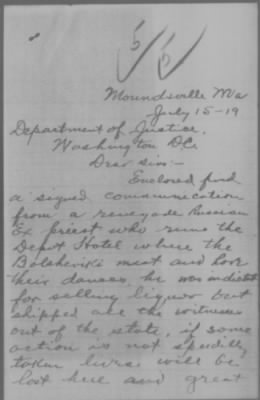 5 5
Moundsville W Va
July 15-19
Department of Justice,
Washington DC.
Dear sir:-
Enclosed find
a signed communication
from a renegade Russian
Ex priest who runs the
Depot Hotel where the
Bolsheviki meet and hold
their dances, he was indicted
for selling liquor but
shipped all the witnesses
out of the state, if some
action is not speedily
taken lives will be
lost here and great